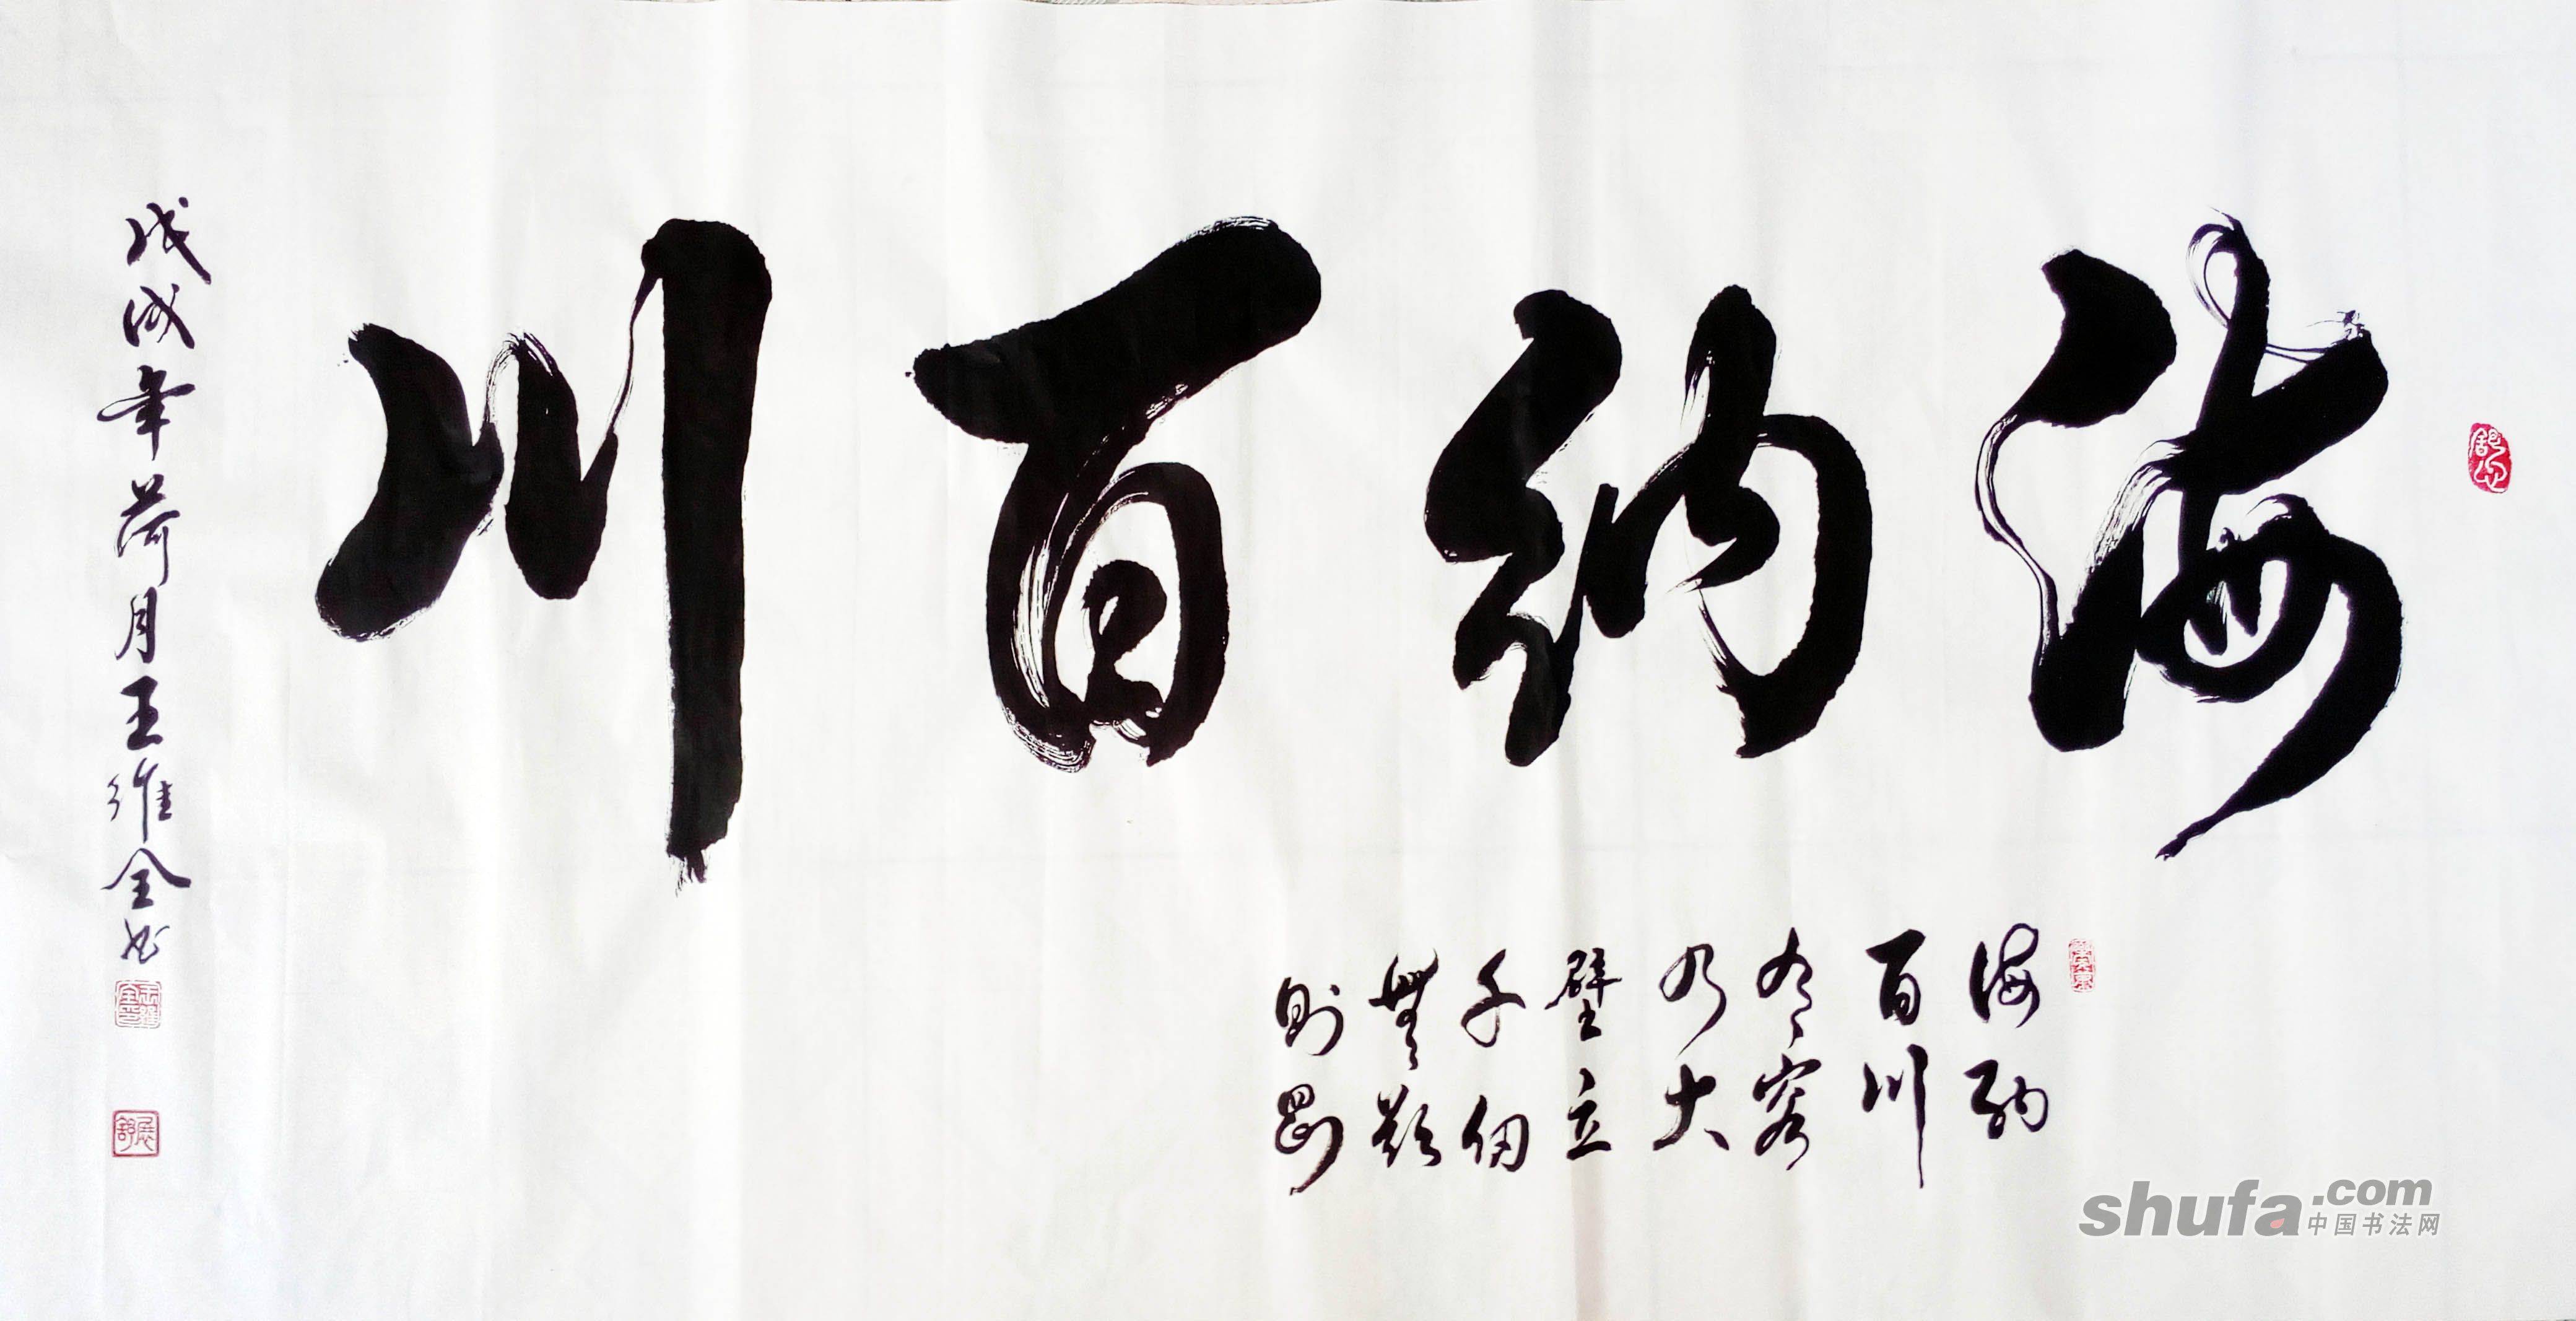 海纳百川
海纳
百川
有容
乃大
壁立
千仞
無欲
則剛
戊戌年荷月王维全书
shufa.com
中国书法网